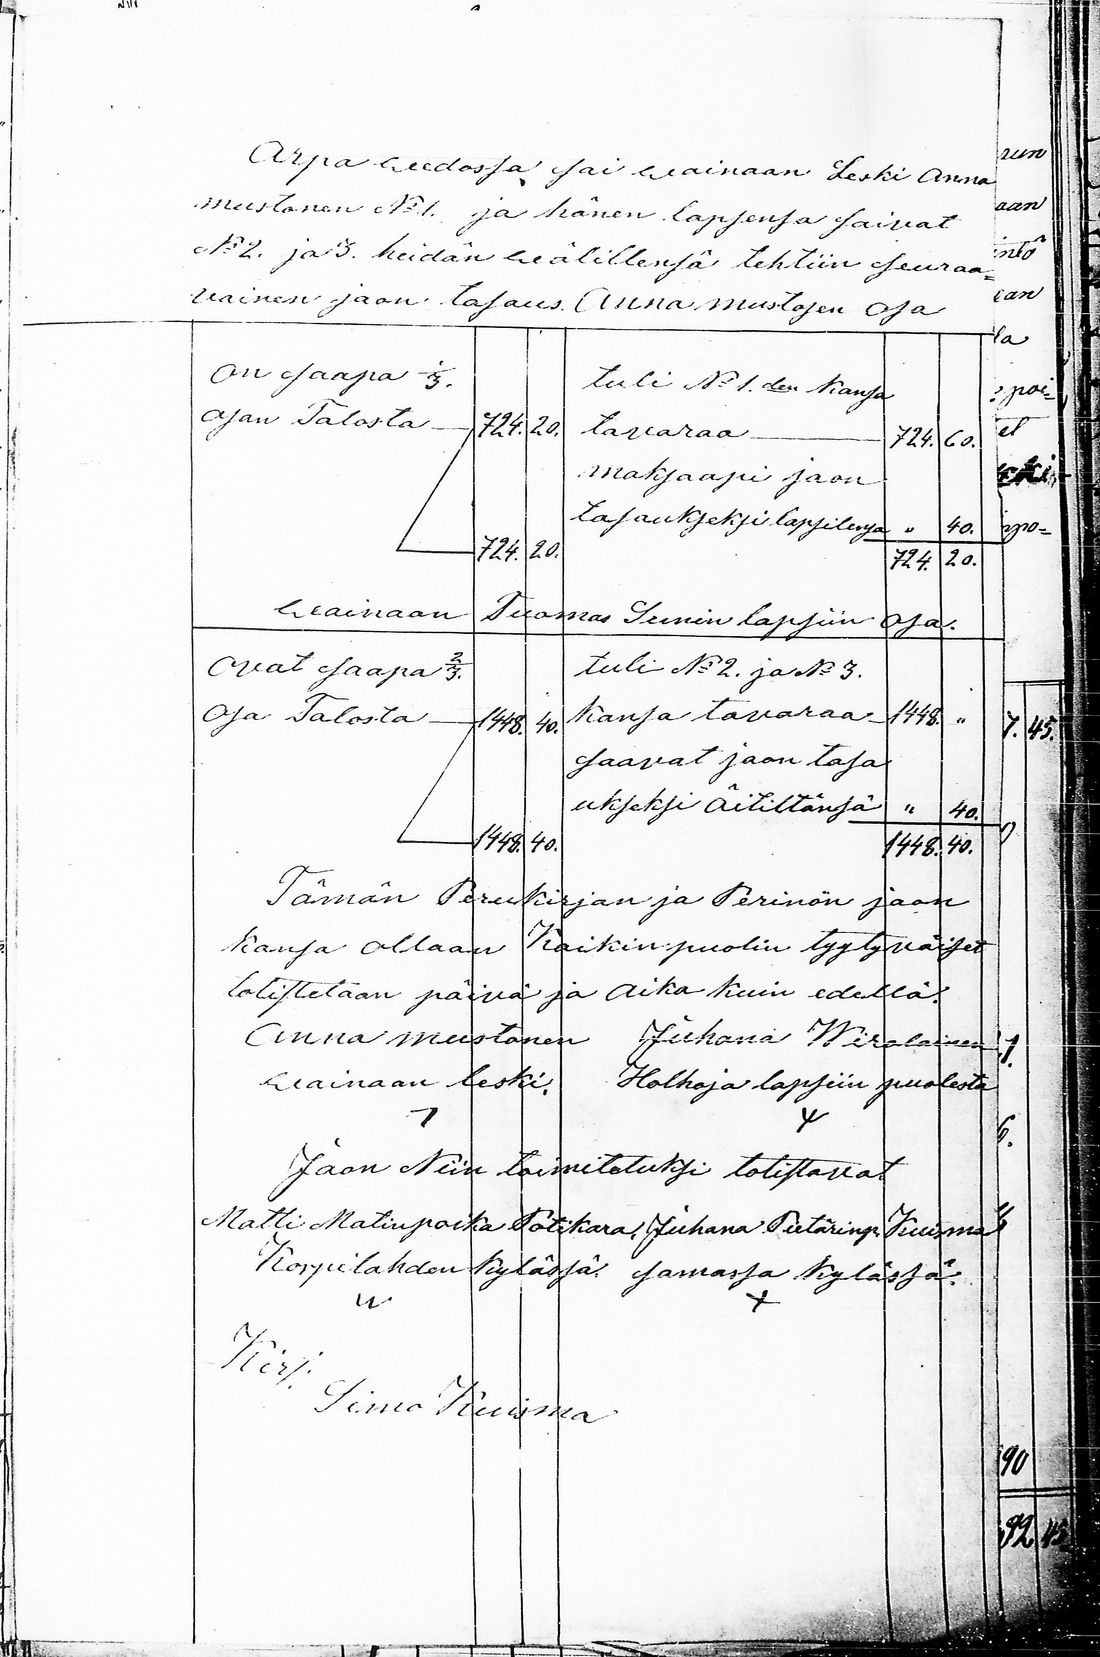 Arpa weedossa sai wainaan Leski Anna
Mustonen № 1. ja hänen lapsensa saivat
№ 2. ja 3. heidän wälillensä tehtiin seuraa=
vainen jaon tasaus. Anna Mustosen osa
On saapa 1/3.
osan Talosta — 724. 20.
724. 20.
tuli № 1. den kansa
tavaraa — 724. 60.
maksaapi jaon
tasaukseksi lapsilensa " 40.
724. 20.
wainaan Tuomas Sunin lapsiin osa.
Ovat saapa 2/3.
osa Talosta — 1448. 40.
1448. 40.
tuli № 2. ja № 3.
kansa tavaraa — 1448. "
saavat jaon tasa
ukseksi äitiltänsä " 40.
1448. 40.
Tämän Perukirjan ja Perinön jaon
kansa ollaan Kaikin puolin tyytyväiset
totistetaan päivä ja aika kuin edellä.
Anna Mustonen Juhana Wirolainen
wainaan leski. Holhoja lapsiin puolesta
Jaon Niin toimitetuksi totistavat
Matti Matinpoika Pötikara, Juhana Pietärinp. Kuisma
Korpilahden kylässä. samassa kylässä.
Kirj.
Simo Kuisma
run
aan
intö
ian
la
poi=
et
ipo=
7. 45.
1.
6.
90
92 45